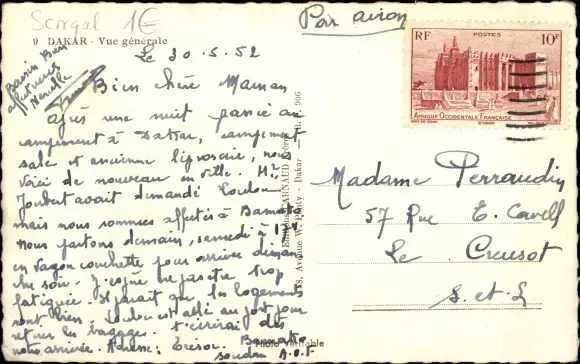 Sengal 1€
Par avion
RF POSTES 10F
AFRIQUE OCCIDENTALE FRANÇAISE
9 DAKAR - Vue générale
Le 30.5.52
Bien chère Maman
après une nuit passée au
campement à Dakar, campement
sale et ancienne léproserie, nous
voici de nouveau en ville. Mr
Joubert avait demandé Loulou
mais nous sommes affectés à Bamako
Nous partons demain, samedi à
en wagon couchette pour arriver diman
che soir. J'espère ne pas être trop
fatiguée. Il paraît que les logements
sont bien. Loulou est allé au port pour
retirer les bagages. t'écrirai dès
notre arrivée. Adresse: Trésor. Bamako
soudan A.O.F
Bons Bien
affectueux
Madame Perraudin
57 Rue E.
Le Creusot
S. et L
Dakar
Photo Véritable